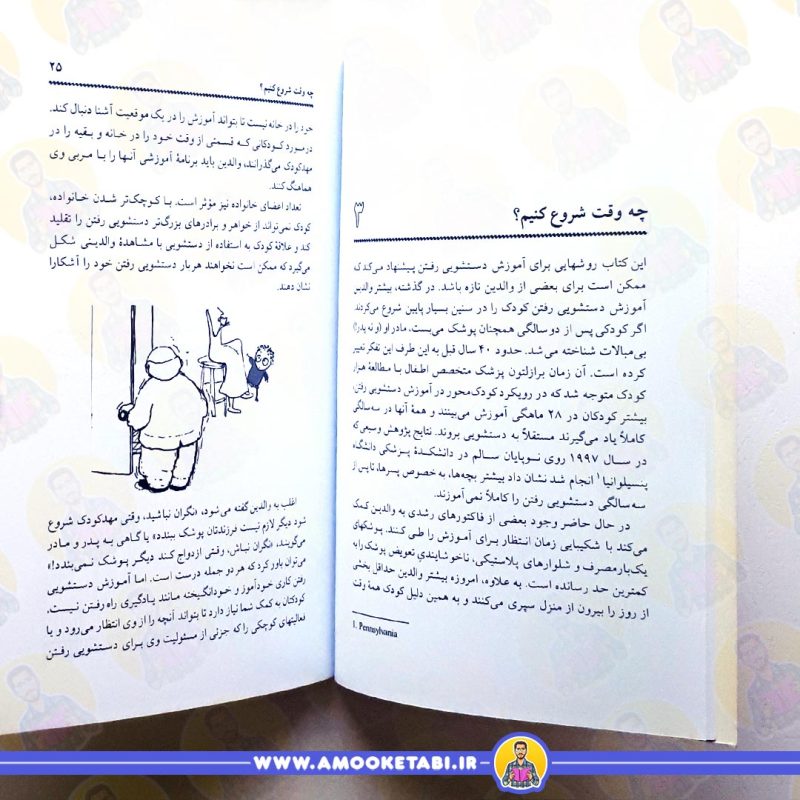 ۳ چه وقت شروع کنیم؟
این کتاب روشهایی برای آموزش دستشویی رفتن پیشنهاد می‌کند که
ممکن است برای بعضی از والدین تازه باشد. در گذشته، بیشتر والدین
آموزش دستشویی رفتن کودک را در سنین بسیار پایین شروع می‌کردند.
اگر کودکی پس از دو سالگی همچنان پوشک می‌بست، مادر او (و نه پدر!)
بی‌مبالات شناخته می‌شد. حدود ۴۰ سال قبل به این طرف این تفکر تغییر
کرده است. آن زمان برازلتون پزشک متخصص اطفال با مطالعهٔ هزار
کودک متوجه شد که در رویکرد کودک‌محور در آموزش دستشویی رفتن،
بیشتر کودکان در ۲۸ ماهگی آموزش می‌بینند و همهٔ آنها در سه‌سالگی
کاملاً یاد می‌گیرند مستقلاً به دستشویی بروند. نتایج پژوهش وسیعی که
در سال ۱۹۹۷ روی نوپایان سالم در دانشکدهٔ پزشکی دانشگاه
پنسیلوانیا۱ انجام شد نشان داد بیشتر بچه‌ها، به خصوص پسرها، تا پس از
سه‌سالگی دستشویی رفتن را کاملاً نمی‌آموزند.
در حال حاضر وجود بعضی از فاکتورهای رشدی به والدین کمک
می‌کند با شکیبایی زمان انتظار برای آموزش را طی کنند. پوشکهای
یک‌بارمصرف و شلوارهای پلاستیکی، ناخوشایندی تعویض پوشک را به
کمترین حد رسانده است. به علاوه، امروزه بیشتر والدین حداقل بخشی
از روز را بیرون از منزل سپری می‌کنند و به همین دلیل کودک همهٔ وقت
1. Pennsylvania
چه وقت شروع کنیم؟ ۲۵
خود را در خانه نیست تا بتواند آموزش را در یک موقعیت آشنا دنبال کند.
در مورد کودکانی که قسمتی از وقت خود را در خانه و بقیه را در
مهدکودک می‌گذرانند، والدین باید برنامهٔ آموزشی آنها را با مربی وی
هماهنگ کند.
تعداد اعضای خانواده نیز مؤثر است. با کوچک‌تر شدن خانواده،
کودک نمی‌تواند از خواهر و برادرهای بزرگ‌تر دستشویی رفتن را تقلید
کند و علاقهٔ کودک به استفاده از دستشویی با مشاهدهٔ والدینی شکل
می‌گیرد که ممکن است نخواهند هربار دستشویی رفتن خود را آشکارا
نشان دهند.
اغلب به والدین گفته می‌شود، «نگران نباشید، وقتی مهدکودک شروع
شود دیگر لازم نیست فرزندتان پوشک ببندد» یا گاهی به پدر و مادر
می‌گویند، «نگران نباش، وقتی ازدواج کند دیگر پوشک نمی‌بندد!»
می‌توان باور کرد که هر دو جمله درست است. اما آموزش دستشویی
رفتن کاری خودآموز و خودانگیخته مانند یادگیری راه رفتن نیست.
کودکتان به کمک شما نیاز دارد تا بتواند آنچه را از وی انتظار می‌رود و یا
فعالیتهای کوچکی را که جزئی از مسئولیت وی برای دستشویی رفتن
WWW.AMOOKETABI.IR